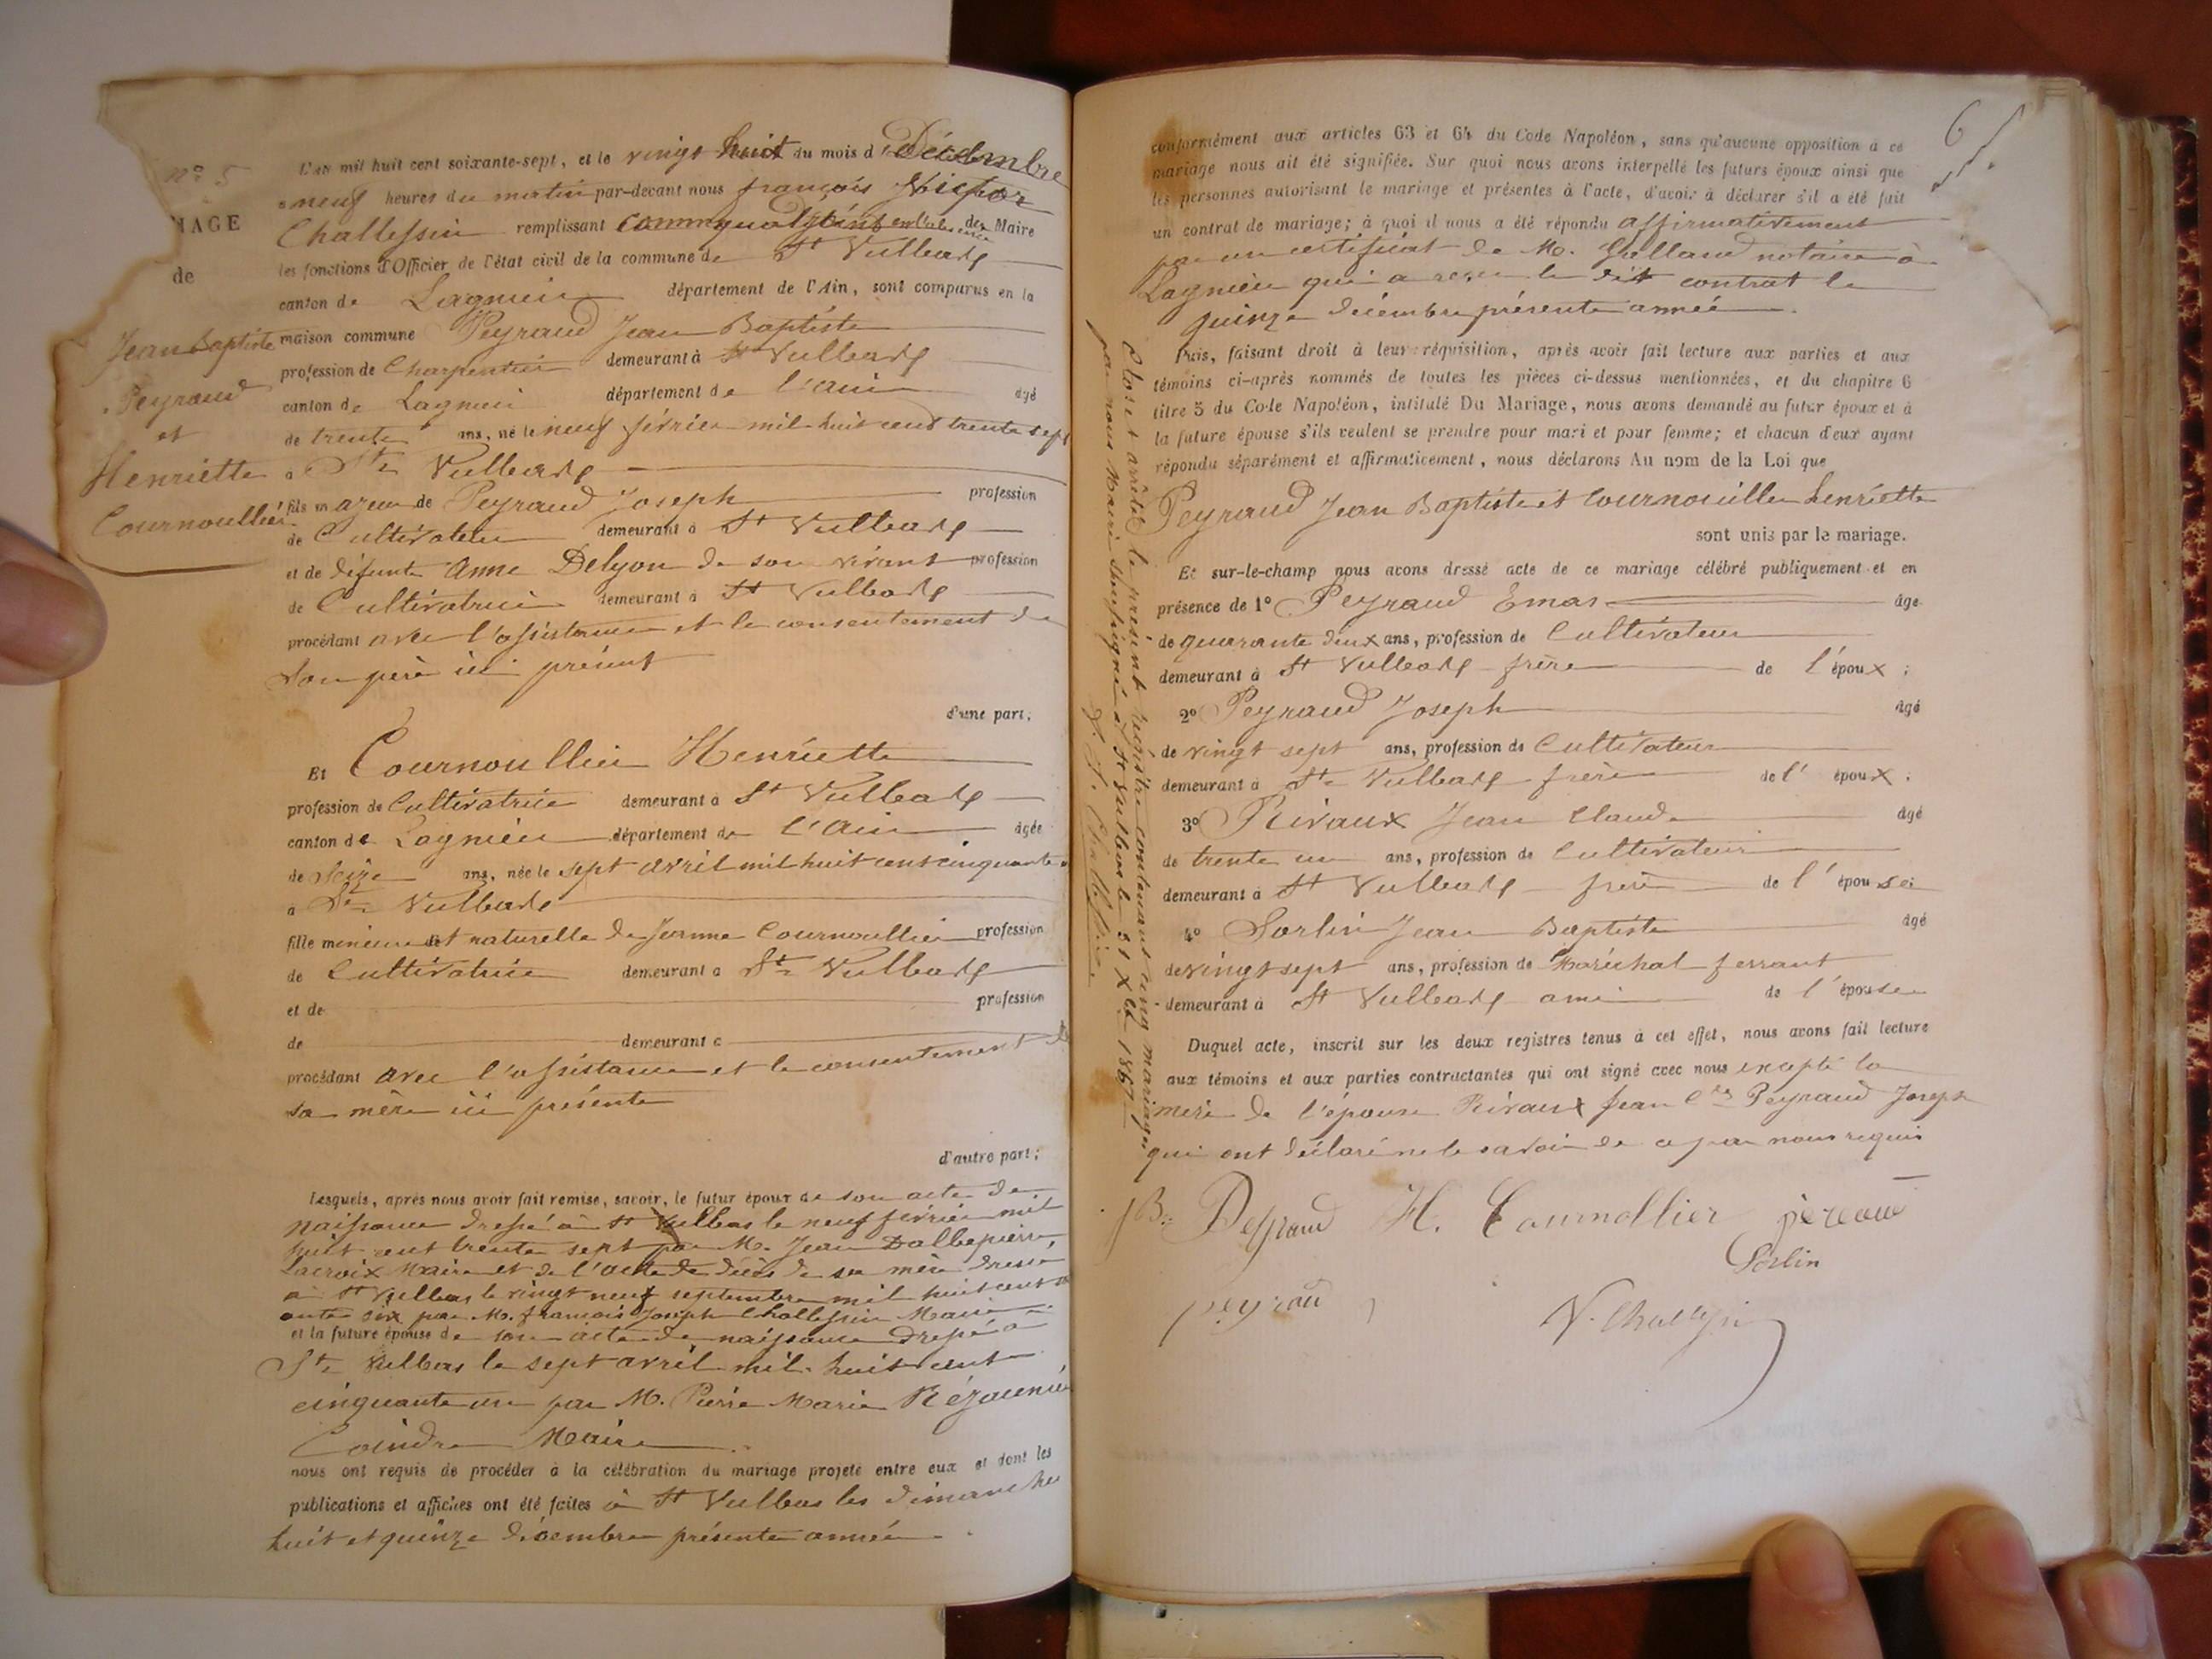 n° 5
IAGE
de
Jean Baptiste
Peyraud
et
Henriette
Cournoullier
L'an mil huit cent soixante-sept, et le vingt huit du mois d Décembre
a neuf heures du matin par-devant nous françois Victor
Challessin remplissant comme adjoint en l'absence du Maire
les fonctions d'Officier de l'état civil de la commune de St Vulbas
canton de Lagnieu département de l'Ain, sont comparus en la
maison commune Peyraud Jean Baptiste
profession de Charpentier demeurant à St Vulbas
canton de Lagnieu département de l'ain âgé
de trente ans, né le neuf février mil huit cent trente sept
a St Vulbas
fils majeur de Peyraud Joseph profession
de Cultivateur demeurant à St Vulbas
et de défunte Anne Delyon de son vivant profession
de Cultivatrice demeurant à St Vulbas
procédant avec l'assistance et le consentement de
son père ici présent
d'une part;
Et Cournoullier Henriette
profession de Cultivatrice demeurant à St Vulbas
canton de Lagnieu département de l'Ain âgée
de Seize ans, née le sept avril mil huit cent cinquante
a St Vulbas
fille mineure et naturelle de Jeanne Cournoullier profession
de Cultivatrice demeurant a St Vulbas
et de profession
de demeurant a
procédant avec l'assistance et le consentement de
sa mère ici présente
d'autre part;
Lesquels, après nous avoir fait remise, savoir, le futur époux de son acte de
naissance dressé à St Vulbas le neuf février mil
huit cent trente sept par M. Jean Dallepierre
Lacroix Maire et de l'acte de décès de sa mère dressé
a St Vulbas le vingt neuf septembre mil huit cent
ante six par M. françois Joseph Challessin Maire
et la future épouse de son acte de naissance dressé à
St Vulbas le sept avril mil huit cent
cinquante un par M. Pierre Marie Réjaunier
Coindre Maire
nous ont requis de procéder à la célébration du mariage projeté entre eux et dont les
publications et affiches ont été faites à St Vulbas les dimanches
huit et quinze décembre présente année
6
conformément aux articles 63 et 64 du Code Napoléon, sans qu'aucune opposition à ce
mariage nous ait été signifiée. Sur quoi nous avons interpellé les futurs époux ainsi que
les personnes autorisant le mariage et présentes à l'acte, d'avoir à déclarer s'il a été fait
un contrat de mariage; à quoi il nous a été répondu affirmativement
par un certificat de M. Galland notaire à
Lagnieu qui a reçu le dit contrat le
quinze décembre présente année
Puis, faisant droit à leur réquisition, après avoir fait lecture aux parties et aux
témoins ci-après nommés de toutes les pièces ci-dessus mentionnées, et du chapitre 6
titre 5 du Code Napoléon, intitulé Du Mariage, nous avons demandé au futur époux et à
la future épouse s'ils veulent se prendre pour mari et pour femme; et chacun d'eux ayant
répondu séparément et affirmativement, nous déclarons Au nom de la Loi que
Peyraud Jean Baptiste et Cournouiller henriette
sont unis par le mariage.
Et sur-le-champ nous avons dressé acte de ce mariage célébré publiquement et en
présence de 1° Peyraud Emar âgé
de quarante deux ans, profession de Cultivateur
demeurant à St Vulbas frère de l'époux;
2° Peyraud Joseph âgé
de vingt sept ans, profession de Cultivateur
demeurant à St Vulbas frère de l'époux;
3° Rivaux Jean Claude âgé
de trente un ans, profession de Cultivateur
demeurant à St Vulbas frère de l'épouse
4° Sorlin Jean Baptiste âgé
de vingt sept ans, profession de Maréchal ferrant
demeurant à St Vulbas ami de l'épouse
Duquel acte, inscrit sur les deux registres tenus à cet effet, nous avons fait lecture
aux témoins et aux parties contractantes qui ont signé avec nous excepté la
mère de l'épouse Rivaux Jean Cde Peyraud Joseph
qui ont déclaré ne le savoir de ce par nous requis
JBte Peyraud H. Cournollier péreau
Sorlin
peyrau V. Challessin
Clos et arrêté le présent registre contenant cinq mariages
par nous Maire soussigné à St Vulbas le 31 Xbre 1867
Challessin